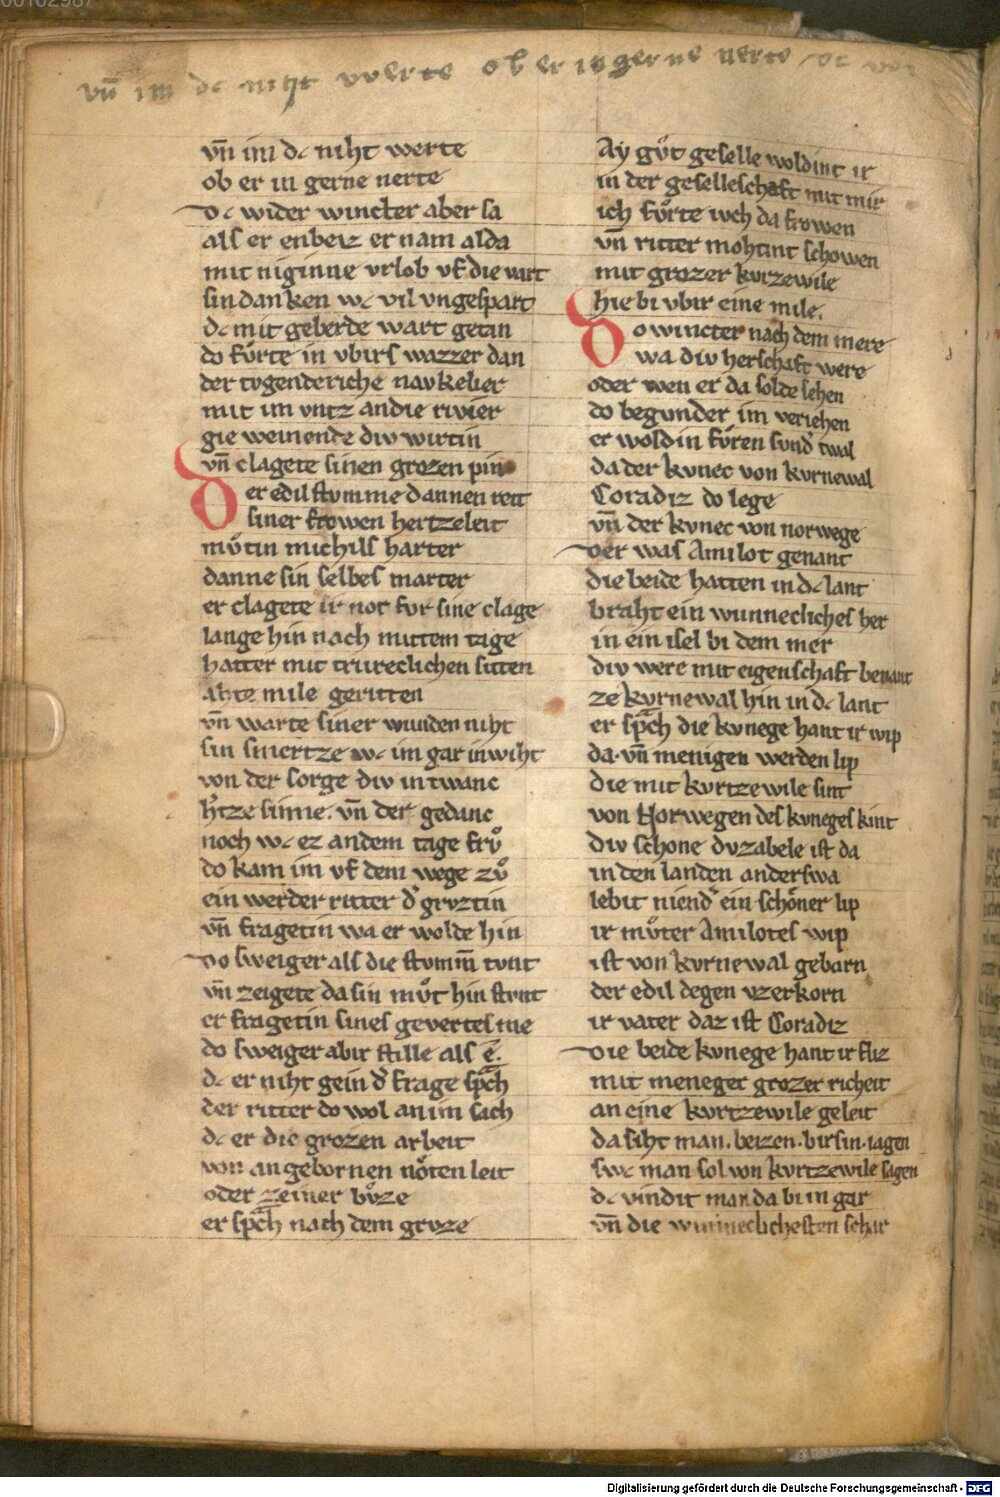 vn̄ im dc niht werte ob er in gerne nerte
vn̄ im dc niht werte
ob er in gerne nerte
Dc wider wincter aber sa
als er enbeiz er nam alda
mit niginne vrlob vf die vart
sin danken wc vil vngespart
dc mit geberde wart getan
do fůrte in vbirs wazzer dan
der tvgenderiche navkelier
mit im vntz an die rivier
gie weinende div wirtin
vn̄ clagete sinen grozen pin
Der edil stvmme dannen reit
siner frowen hertzeleit
můtin michils harter
danne sin selbes marter
er clagete ir not fvr sine clage
lange hin nach mittem tage
hatter mit trureclichen sitten
ahte mile geritten
vn̄ warte siner wunden niht
sin smertze wc im gar inwiht
von der sorge div in twanc
h'tze sinne. vn̄ der gedanc
noch wc ez an dem tage frů
do kam im vf dem wege zů
ein werder ritter d' grvztin
vn̄ fragetin wa er wolde hin
Do sweiger als die stvmm̄ tvnt
vn̄ zeigete da sin můt hin stvnt
er fragetin sines gevertes me
do sweiger abir stille als e.
dc er niht gein d' frage spͣch
der ritter do wol an im sach
dc er die grozen arbeit
von angebornen nöten leit
oder zeiner bůze
er spͣch nach dem grvze
Ay gůt geselle woldint ir
in der geselleschaft mit mir
ich fůrte iwch da frowen
vn̄ ritter mohtint schowen
mit grozer kvrzewile
hie bi vbir eine mile.
Do wincter nach dem mere
wa div herschaft were
oder wen er da solde sehen
do begunder im veriehen
er woldin fůren sund' twal
da der kvnec von kvrnewal
Coradiz do lege
vn̄ der kvnec von norwege
Der was Amilot genant
die beide hatten in dc lant
braht ein wunnecliches her
in ein isel bi dem mer
div were mit eigenschaft benant
ze kvrnewal hin in dc lant
er spͣch die kvnege hant ir wip
da. vn̄ menigen werden lip
die mit kvrtzewile sint
von Norwegen des kvneges kint
div schone dvzabele ist da
in den landen anderswa
lebit niend' ein schöner lip
ir můter Amilotes wip
ist von kvrnewal geborn
der edil degen vzerkorn
ir vater daz ist Coradiz
Die beide kvnege hant ir fliz
mit meneger grozer richeit
an eine kvrtzewile geleit
da siht man. beizen. birsin. iagen
swc man sol von kvrtzewile sagen
dc vindit man da bi in gar
vn̄ die wunneclichesten schar
Digitalisierung gefördert durch die Deutsche Forschungsgemeinschaft - DFG